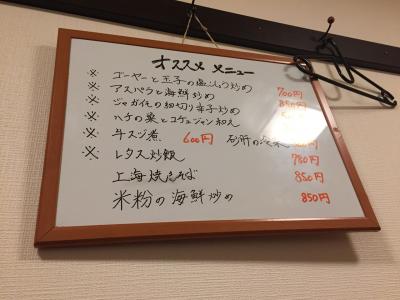 オススメ メニュー
※ ゴーヤーと玉子の塩こしょう炒め 700円
※ アスパラと海鮮炒め 850円
※ ジャガイモの細切り辛子炒め
※ ハチの巣とコチュジャン和え
※ 牛スジ煮 600円 砂肝の
※ レタス炒飯 780円
上海焼きそば 850円
米粉の海鮮炒め 850円